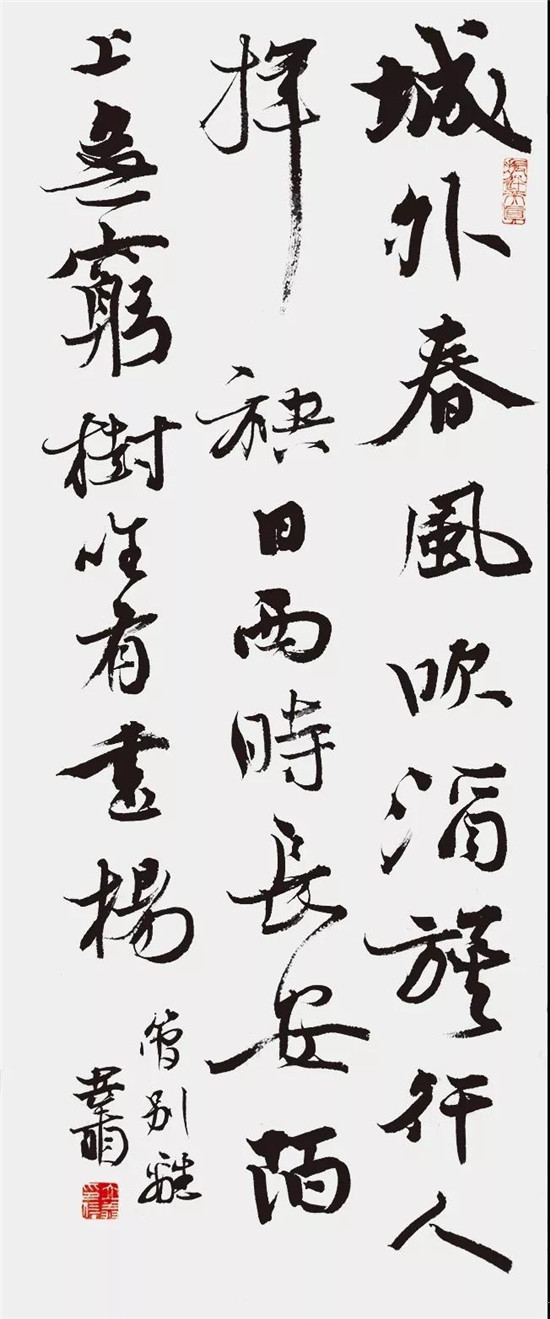 城外春風吹酒旗行人
揮袂日西時長安陌
上無窮樹唯有垂楊
管别離